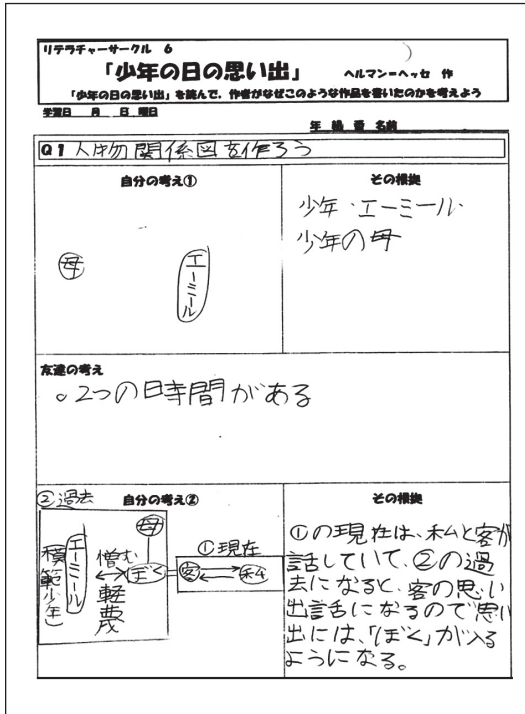 リテラチャーサークル 6
「少年の日の思い出」 ヘルマン=ヘッセ 作
「少年の日の思い出」を読んで、作者がなぜこのような作品を書いたのかを考えよう
学習日 月 日 曜日
年 組 番 名前
Q1 人物関係図を作ろう
自分の考え①
母
エーミール
その根拠
少年・エーミール・
少年の母
友達の考え
。2つの時間がある
自分の考え②
②過去
母
エーミール
(模範少年)
憎む
軽蔑
ぼく
①現在
客
私
その根拠
①の現在は、私と客が
話していて、②の過
去になると、客の思い
出話になるので思い
出には、「ぼく」が入る
ようになる。